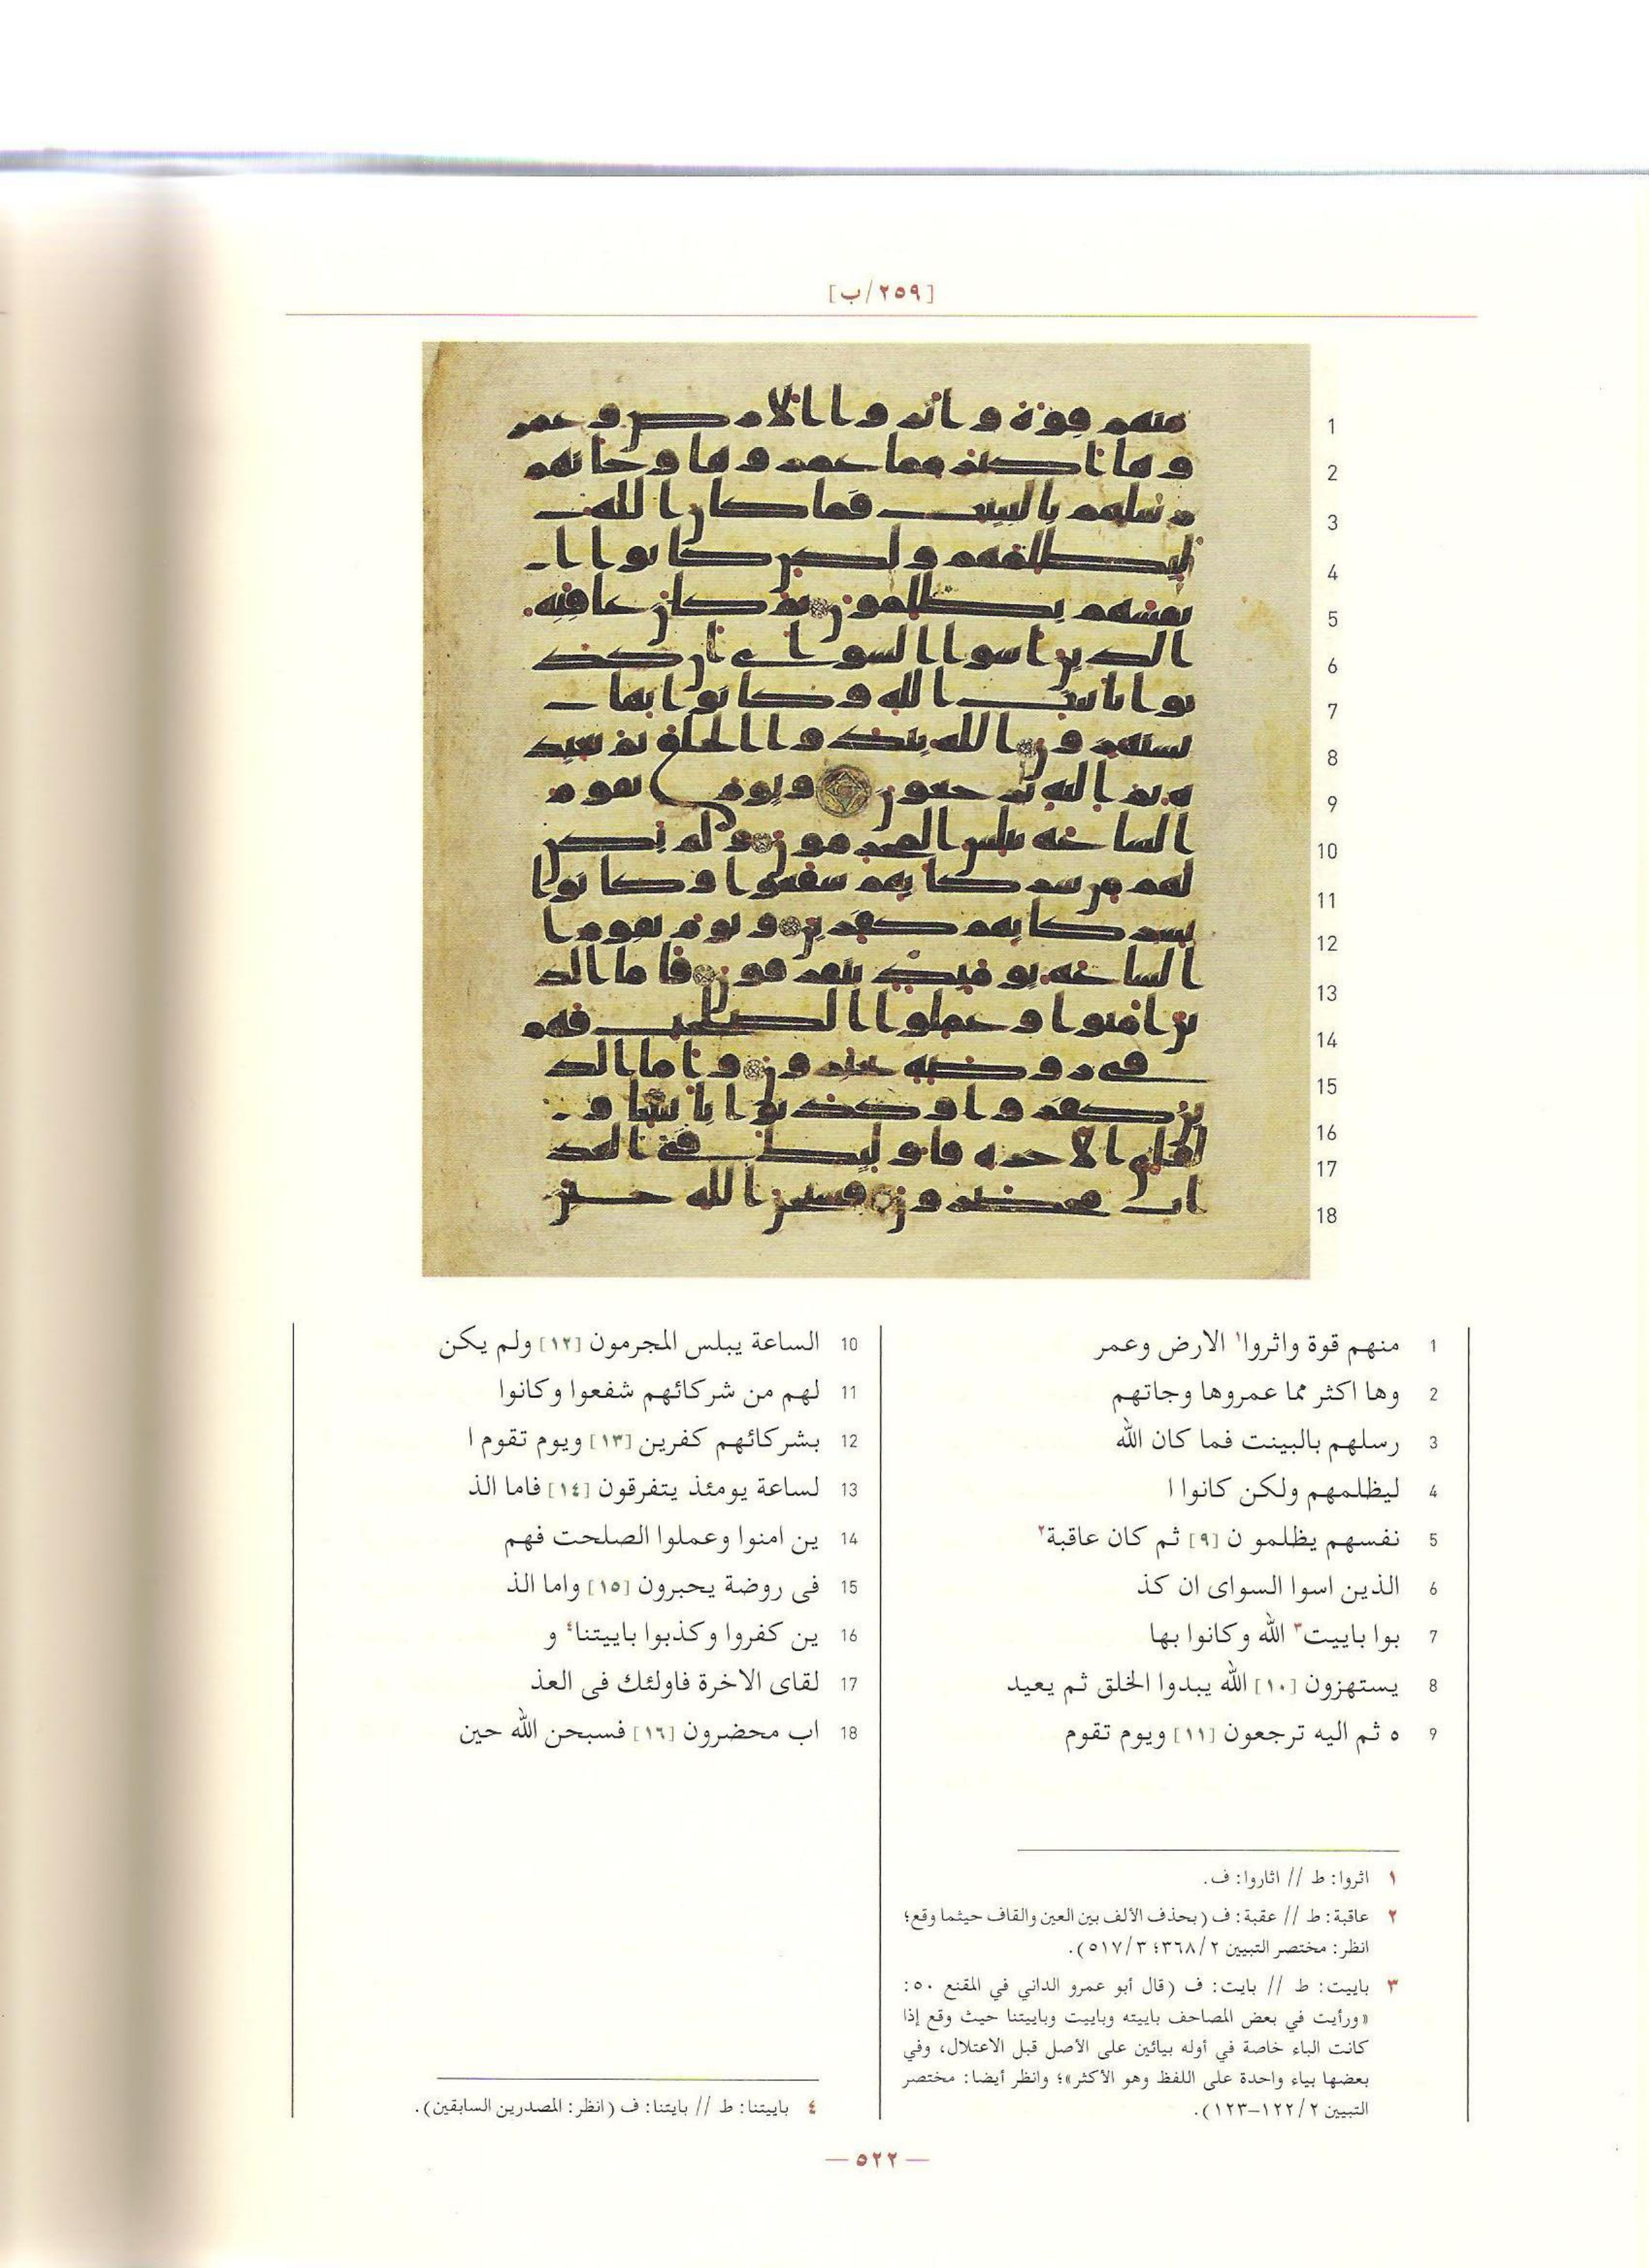 [٢٥٩/ب]
1 منهم قوة واثروا١ الارض وعمر
2 وها اكثر مما عمروها وجاتهم
3 رسلهم بالبينت فما كان الله
4 ليظلمهم ولكن كانوا ا
5 نفسهم يظلمو ن [٩] ثم كان عاقبة٢
6 الذين اسوا السواى ان كذ
7 بوا باييت٣ الله وكانوا بها
8 يستهزون [١٠] الله يبدوا الخلق ثم يعيد
9 ه ثم اليه ترجعون [١١] ويوم تقوم
10 الساعة يبلس المجرمون [١٢] ولم يكن
11 لهم من شركائهم شفعوا وكانوا
12 بشركائهم كفرين [١٣] ويوم تقوم ا
13 لساعة يومئذ يتفرقون [١٤] فاما الذ
14 ين امنوا وعملوا الصلحت فهم
15 فى روضة يحبرون [١٥] واما الذ
16 ين كفروا وكذبوا باييتنا٤ و
17 لقاى الاخرة فاولئك فى العذ
18 اب محضرون [١٦] فسبحن الله حين
١ اثروا: ط // اثاروا: ف.
٢ عاقبة: ط // عقبة: ف (بحذف الألف بين العين والقاف حيثما وقع؛
انظر: مختصر التبيين ٣٦٨/٢؛ ٥١٧/٣).
٣ باييت: ط // بايت: ف (قال أبو عمرو الداني في المقنع ٥٠:
«ورأيت في بعض المصاحف باييته وباييت وباييتنا حيث وقع إذا
كانت الباء خاصة في أوله بيائين على الأصل قبل الاعتلال، وفي
بعضها بياء واحدة على اللفظ وهو الأكثر»؛ وانظر أيضا: مختصر
التبيين ١٢٢/٢–١٢٣).
٤ باييتنا: ط // بايتنا: ف (انظر: المصدرين السابقين).
— ٥٢٢ —